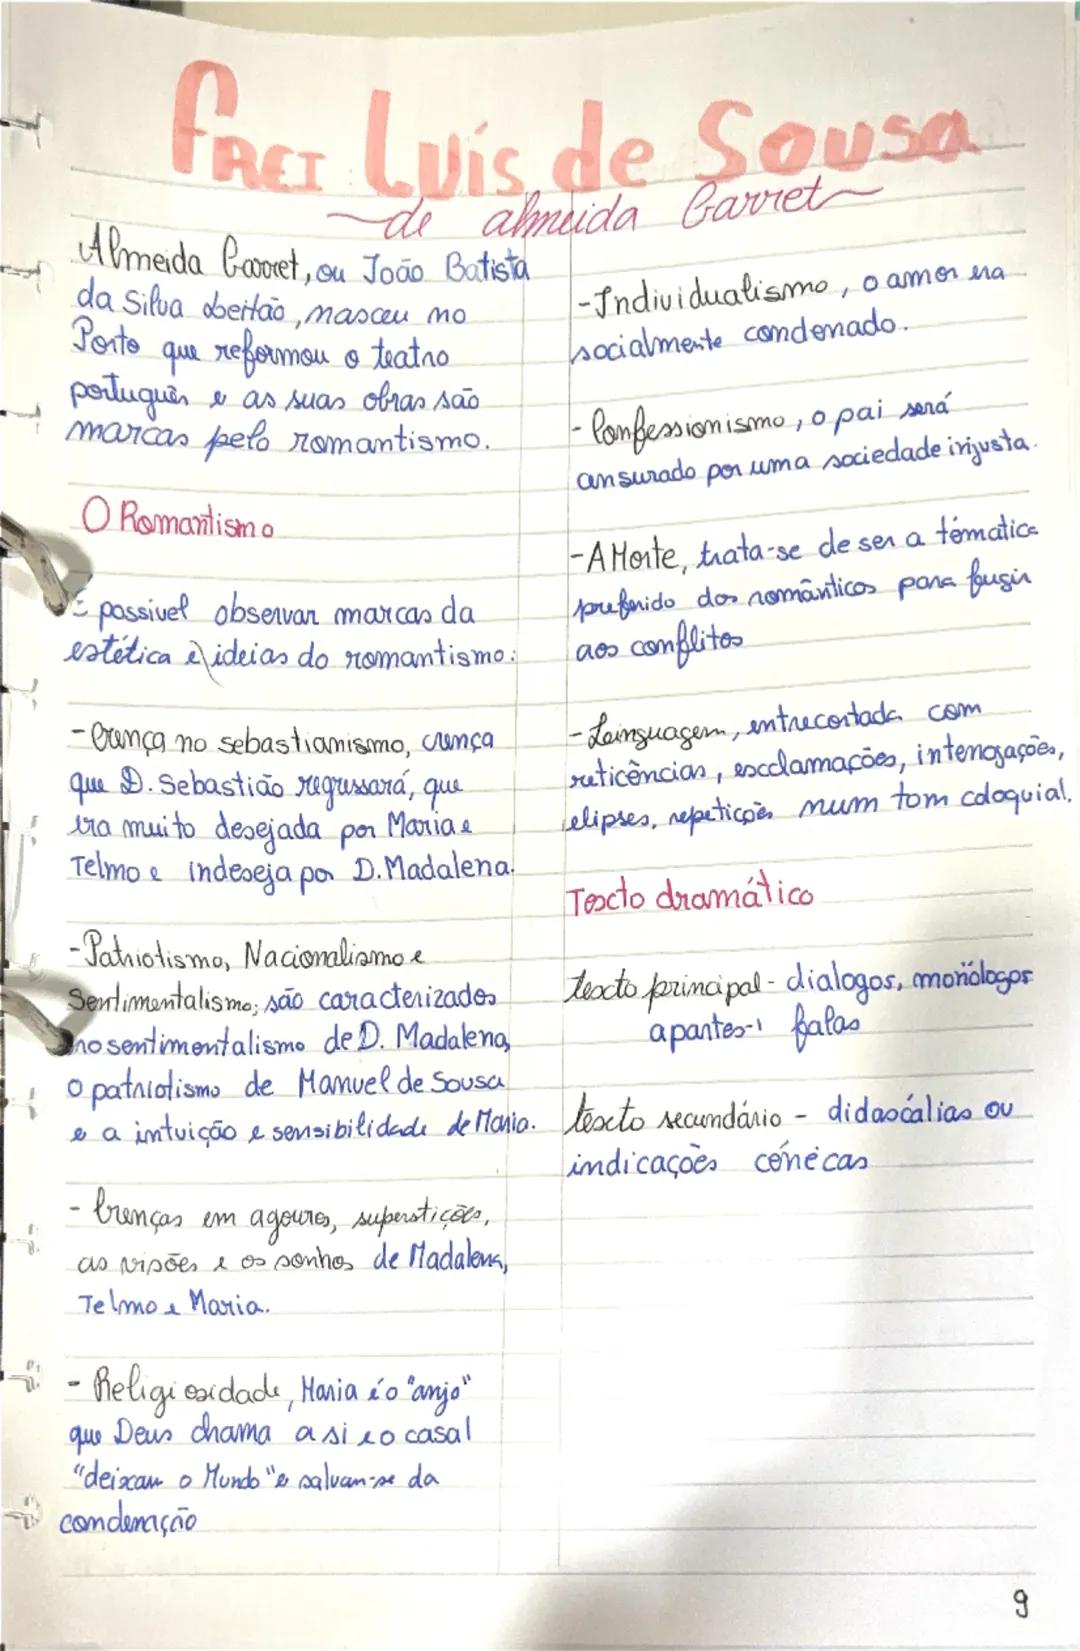 Frei Luís de Sousa
de almeida Garret
Almeida Garret, ou João Batista
da Silva Leitão, nasceu no
Porto que reformou o teatro
português e as suas obras são
marcas pelo romantismo.
O Romantismo
É possivel observar marcas da
estética e ideias do romantismo:
-Crença no sebastianismo, crença
que D. Sebastião regressará, que
era muito desejada por Maria e
Telmo e indeseja por D. Madalena.
-Patriotismo, Nacionalismo e
Sentimentalismo; são caracterizados
no sentimentalismo de D. Madalena,
o patriotismo de Manuel de Sousa
e a intuição e sensibilidade de Maria.
- Crenças em agouros, superstições,
as visões e os sonhos de Madalena,
Telmo e Maria.
- Religiosidade, Maria é o "anjo"
que Deus chama a si e o casal
"deixam o Mundo" e salvam-se da
condenação
-Individualismo, o amor era
socialmente condenado.
- Confessionismo, o pai será
ansurado por uma sociedade injusta.
-A Morte, trata-se de ser a témática
preferido dos românticos para fugir
aos conflitos
-Linguagem, entrecortada com
reticências, exclamações, interrogações,
elipses, repetições num tom coloquial.
Texto dramático
texto principal - dialogos, monólogos
apartes-, falas
texto secundário - didascálias ou
indicações cénecas
9